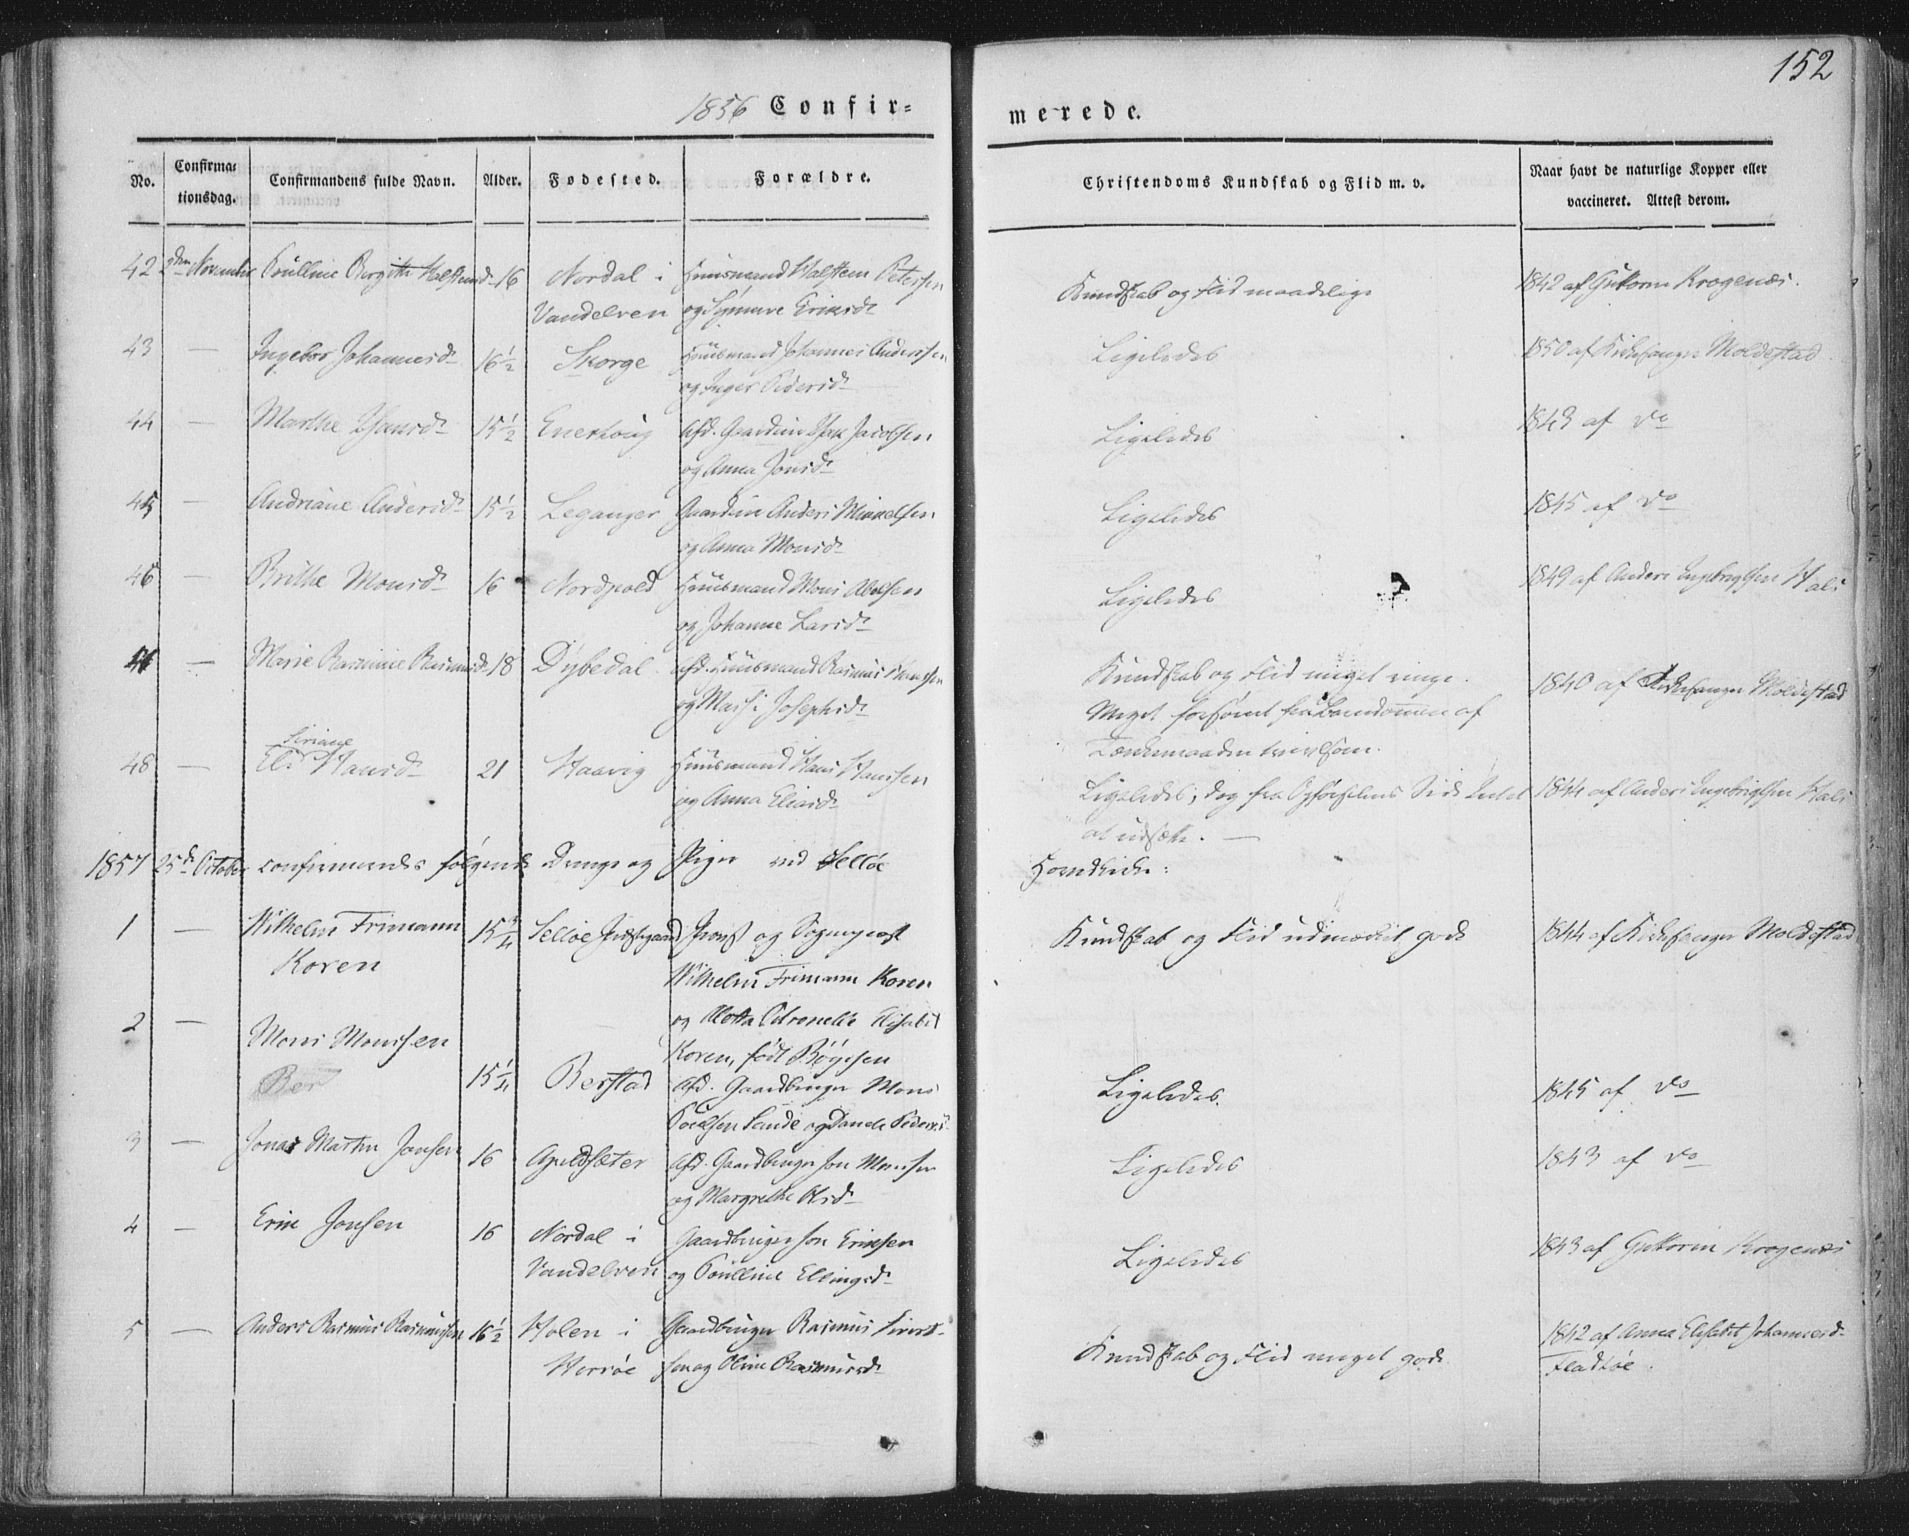 152
1856 Confir=
merede.
No. Confirma= tionsdag. Confirmandens fulde Navn. Alder. Fødested. Forældre. Christendoms Kundskab og Flid m. v. Naar havt de naturlige Kopper eller vaccineret. Attest derom.
42 2den November Poulline Bergithe Halstensd. 16 Nordal i Huusmand Halsten Petersen Kundskab og Flid maadelige 1842 af Guttorm Krogenæs.
Vandelven og Synneve Eriksd.
43 — Ingebor Johannesd. 16½ Skorge Huusmand Johannes Anderssen Ligeledes 1850 af Kirkesanger Moldestad
og Inger Pedersd.
44 — Marthe 15½ Afd. Gaardm. Jacobsen Ligeledes 1843 af do
og Anna Jonsd.
45 — Andriane Andersd. 15½ Leganger Gaardm. Anders Mikkelsen Ligeledes 1845 af do
og Anna Monsd.
46 — Brithe Monsd. 16 Nordpold Huusmand Mons Abelsen Ligeledes 1849 af Anders Ingebrigtsen Hals
og Johanne Larsd.
— Marie Rasmine Rasmusd. 18 Dybedal Afd. Huusmand Rasmus Hanssen Kundskab og Flid meget ringe. 1840 af Kirkesanger Moldestad
og Josephsd. Meget forsømt fra Barndommen af
48 — Eli Siriane Hansd. 21 Haavig Huusmand Hans Hanssen
og Anna Eliasd. Ligeledes, dog fra Opførselens Side Intet 1844 af Anders Ingebrigtsen Hals
at udsætte. —
1857 25de October confirmeredes følgende Drenge og Piger ved Selløe
Hovedkirke:
1 — Wilhelm Frimann 15¾ Selløe Præstegaard Provst og Sognepræst Kundskab og Flid udmærket gode 1844 af Kirkesanger Moldestad
Koren Wilhelm Frimann Koren
og Petronelle Elisabet
Koren, født Bøgesen
2 — Mons Monssen 15¼ Berstad Afd. Gaardbruger Mons Ligeledes. 1845 af do
Ber
Poulsen Sande og Pedersd.
3 — Jonas Martin Jonsen 16 Apeldsæter Afd. Gaardbruger Jon Monsen Ligeledes 1843 af do
og Margrethe Olsd.
4 — Erik Jonsen 16 Nordal i Gaardbruger Jon Eriksen Ligeledes 1843 af Guttorm Krogenæs
Vandelven og Poulline Ellingsd.
5 — Anders Rasmus Rasmussen 16½ Holen i Gaardbruger Rasmus Sivert- Kundskab og Flid meget gode 1842 af Anna Elisabet Johannesd.
sen og Oline Rasmusd.